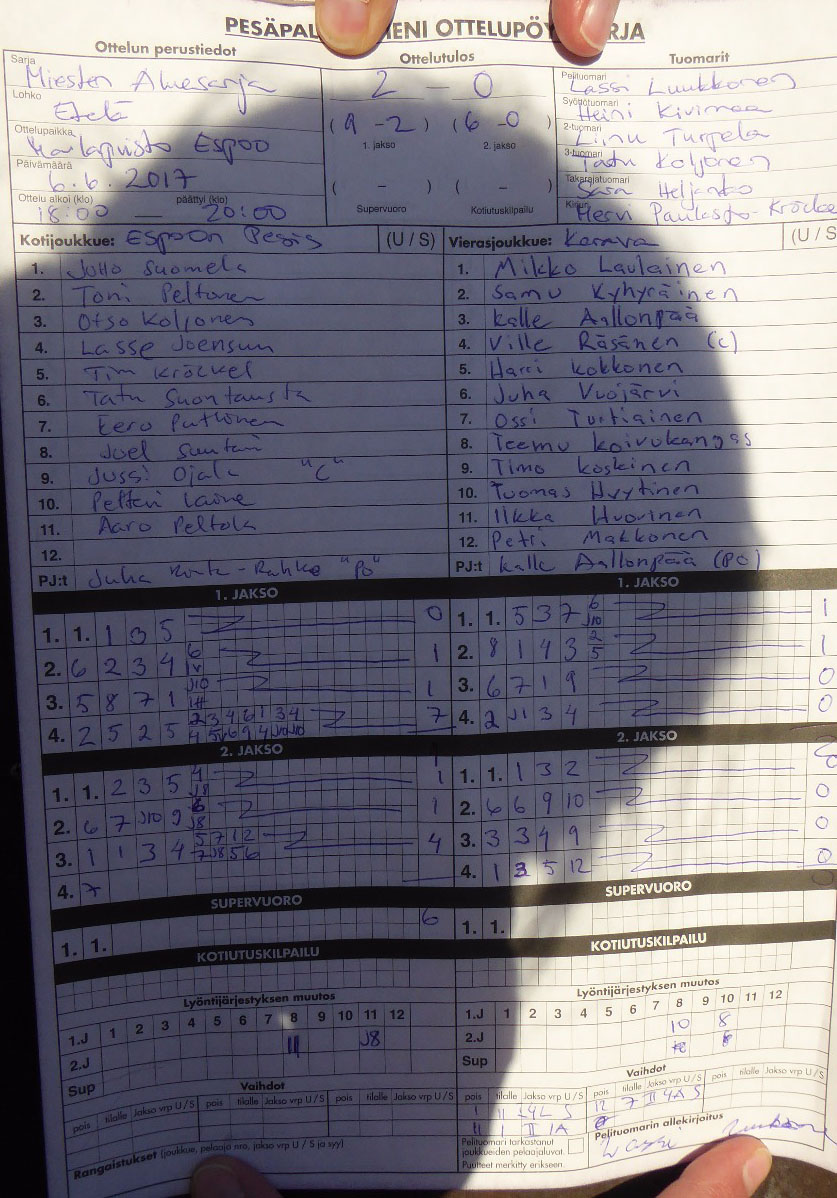 PESÄPAL
IENI OTTELUPÖY
RJA
Ottelun perustiedot
Sarja
Miesten Aluesarja
Lohko
Etelä
Ottelupaikka
Espoo
Päivämäärä
6.6.2017
Ottelu alkoi (klo) päättyi (klo)
18:00 — 20:00
Ottelutulos
2 — 0
(9 - 2) (6 - 0)
1. jakso 2. jakso
( - ) ( - )
Supervuoro Kotiutuskilpailu
Tuomarit
Pelituomari
Lassi Luukkonen
Syöttötuomari
Heini Kivimaa
2-tuomari
Liinu Turpela
3-tuomari
Tatu Koljonen
Takarajatuomari
Sasa Heljanko
Kirjuri
Hervi Paulasto-Kröckel
Kotijoukkue: Espoon Pesis (U / S)
1. Juho Suomela
2. Toni Peltonen
3. Otso Koljonen
4. Lasse Joensuu
5. Tim Kröckel
6. Tatu Suontausta
7. Eero Puttonen
8. Joel
9. Jussi Ojala "C"
10. Petteri Laine
11. Aaro Peltola
12.
PJ:t Juha "PO"
Vierasjoukkue: Kerava (U / S)
1. Mikko Laulainen
2. Samu Kyhyräinen
3. Kalle Aallonpää
4. Ville Räsänen (C)
5. Harri Kokkonen
6. Juha Vuojärvi
7. Ossi Turtiainen
8. Teemu Koivukangas
9. Timo Koskinen
10. Tuomas Hyytinen
11. Ilkka Huovinen
12. Petri Makkonen
PJ:t Kalle Aallonpää (PO)
1. JAKSO
1. 1. 1 3 5 0
2. 6 2 3 4 1
3. 5 8 7 1 1
4. 2 5 2 5 7
1. JAKSO
1. 1. 5 3 7 6 J10 1
2. 8 1 4 3 2 5 1
3. 6 7 1 9 0
4. 2 J1 3 4 0
2. JAKSO
1. 1. 2 3 5 4 J8 1
2. 6 7 J10 9 J8 1
3. 1 1 3 4 5 7 12 7 J8 5 6 4
4. 7
2. JAKSO
1. 1. 1 3 2
2. 6 6 9 10 0
3. 3 3 4 9 0
4. 1 3 5 12 0
SUPERVUORO
6
1. 1.
SUPERVUORO
1. 1.
KOTIUTUSKILPAILU
KOTIUTUSKILPAILU
Lyöntijärjestyksen muutos
1 2 3 4 5 6 7 8 9 10 11 12
1.J
2.J 11 J8
Sup
Lyöntijärjestyksen muutos
1 2 3 4 5 6 7 8 9 10 11 12
1.J 10 8
2.J
Sup
Vaihdot
pois tilalle Jakso vrp U / S pois tilalle Jakso vrp U / S pois tilalle Jakso vrp U / S
Vaihdot
pois tilalle Jakso vrp U / S pois tilalle Jakso vrp U / S pois tilalle Jakso vrp U / S
1 11 I 4L S 12 7 II 4A S
11 1 II 1A
Rangaistukset (joukkue, pelaaja nro, jakso vrp U / S ja syy)
Pelituomari tarkastanut
joukkueiden pelaajaluvat.
Puutteet merkitty erikseen.
Pelituomarin allekirjoitus
Lassi Luukkonen